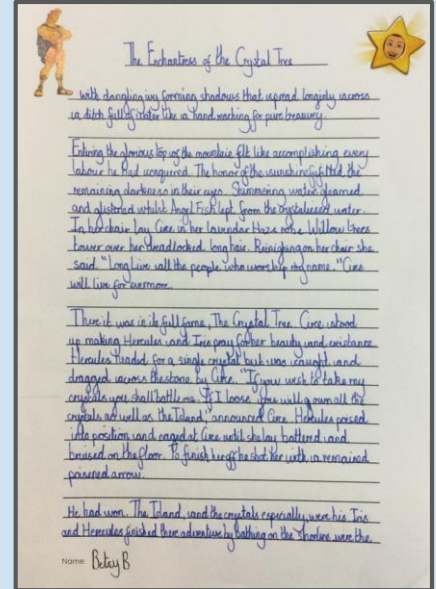 The Enchantress of the Crystal Tree
with dangling ivy forming shadows that spread longinly across
a ditch full of water like a hand reaching for pure treasury.
Entering the glorious top of the mountain felt like accomplishing every
labour he had conquered. The honor of the sunshine the
remaining darkness in their eyes. Shimmering water gleamed
and glistened whilst Angel Fish lept from the crystalised water.
In her chair lay Circe in her lavendar Haze robe. Willow trees
tower over her dreadlocked, long hair. on her chair she
said. "Long Live all the people who worship my name. "Circe
will live for evermore.
There it was in its full fame, The Crystal Tree. Circe stood
up making Hercules and Iris pray for her beauty and existance.
Hercules headed for a single crystal but was caught and
dragged across the stone by Circe. "If you wish to take my
crystals you shall battle me. If I loose you will own all the
crystals as well as the Island" announced Circe. Hercules
into position and raged at Circe until she lay battered and
bruised on the floor. To finish her off he shot her with a remained
poisened arrow.
He had won. The Island, and the crystals especially, were his. Iris
and Hercules finished there adventure by bathing on the shoreline were the
Name: Betsy B